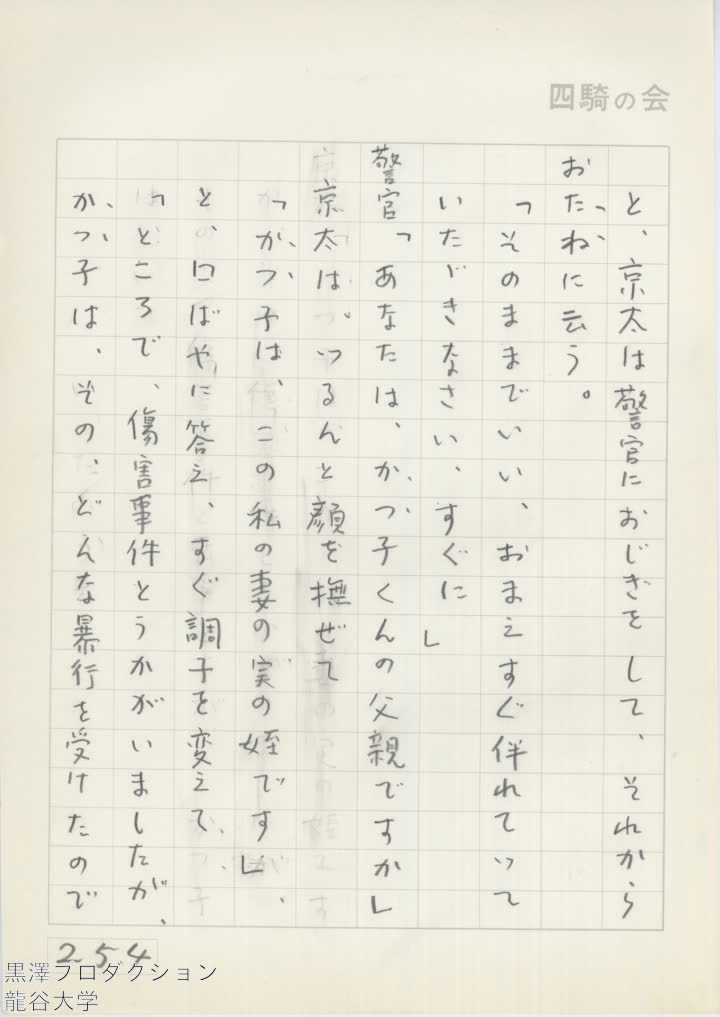 四騎の会
と、京太は警官におじぎをして、それから
おたねに云う。
「そのままでいい、おまえすぐ伴れていて
いたゞきなさい、すぐに」
警官「あなたは、かつ子くんの父親ですか」
京太は、つるんと顔を撫ぜて
「かつ子は、この私の妻の実の姪です」、
と、口ばやに答え、すぐ調子を変えて、
「ところで、傷害事件とうかがいましたが、
かつ子は、その、どんな暴行を受けたので
254
黒澤プロダクション
龍谷大学